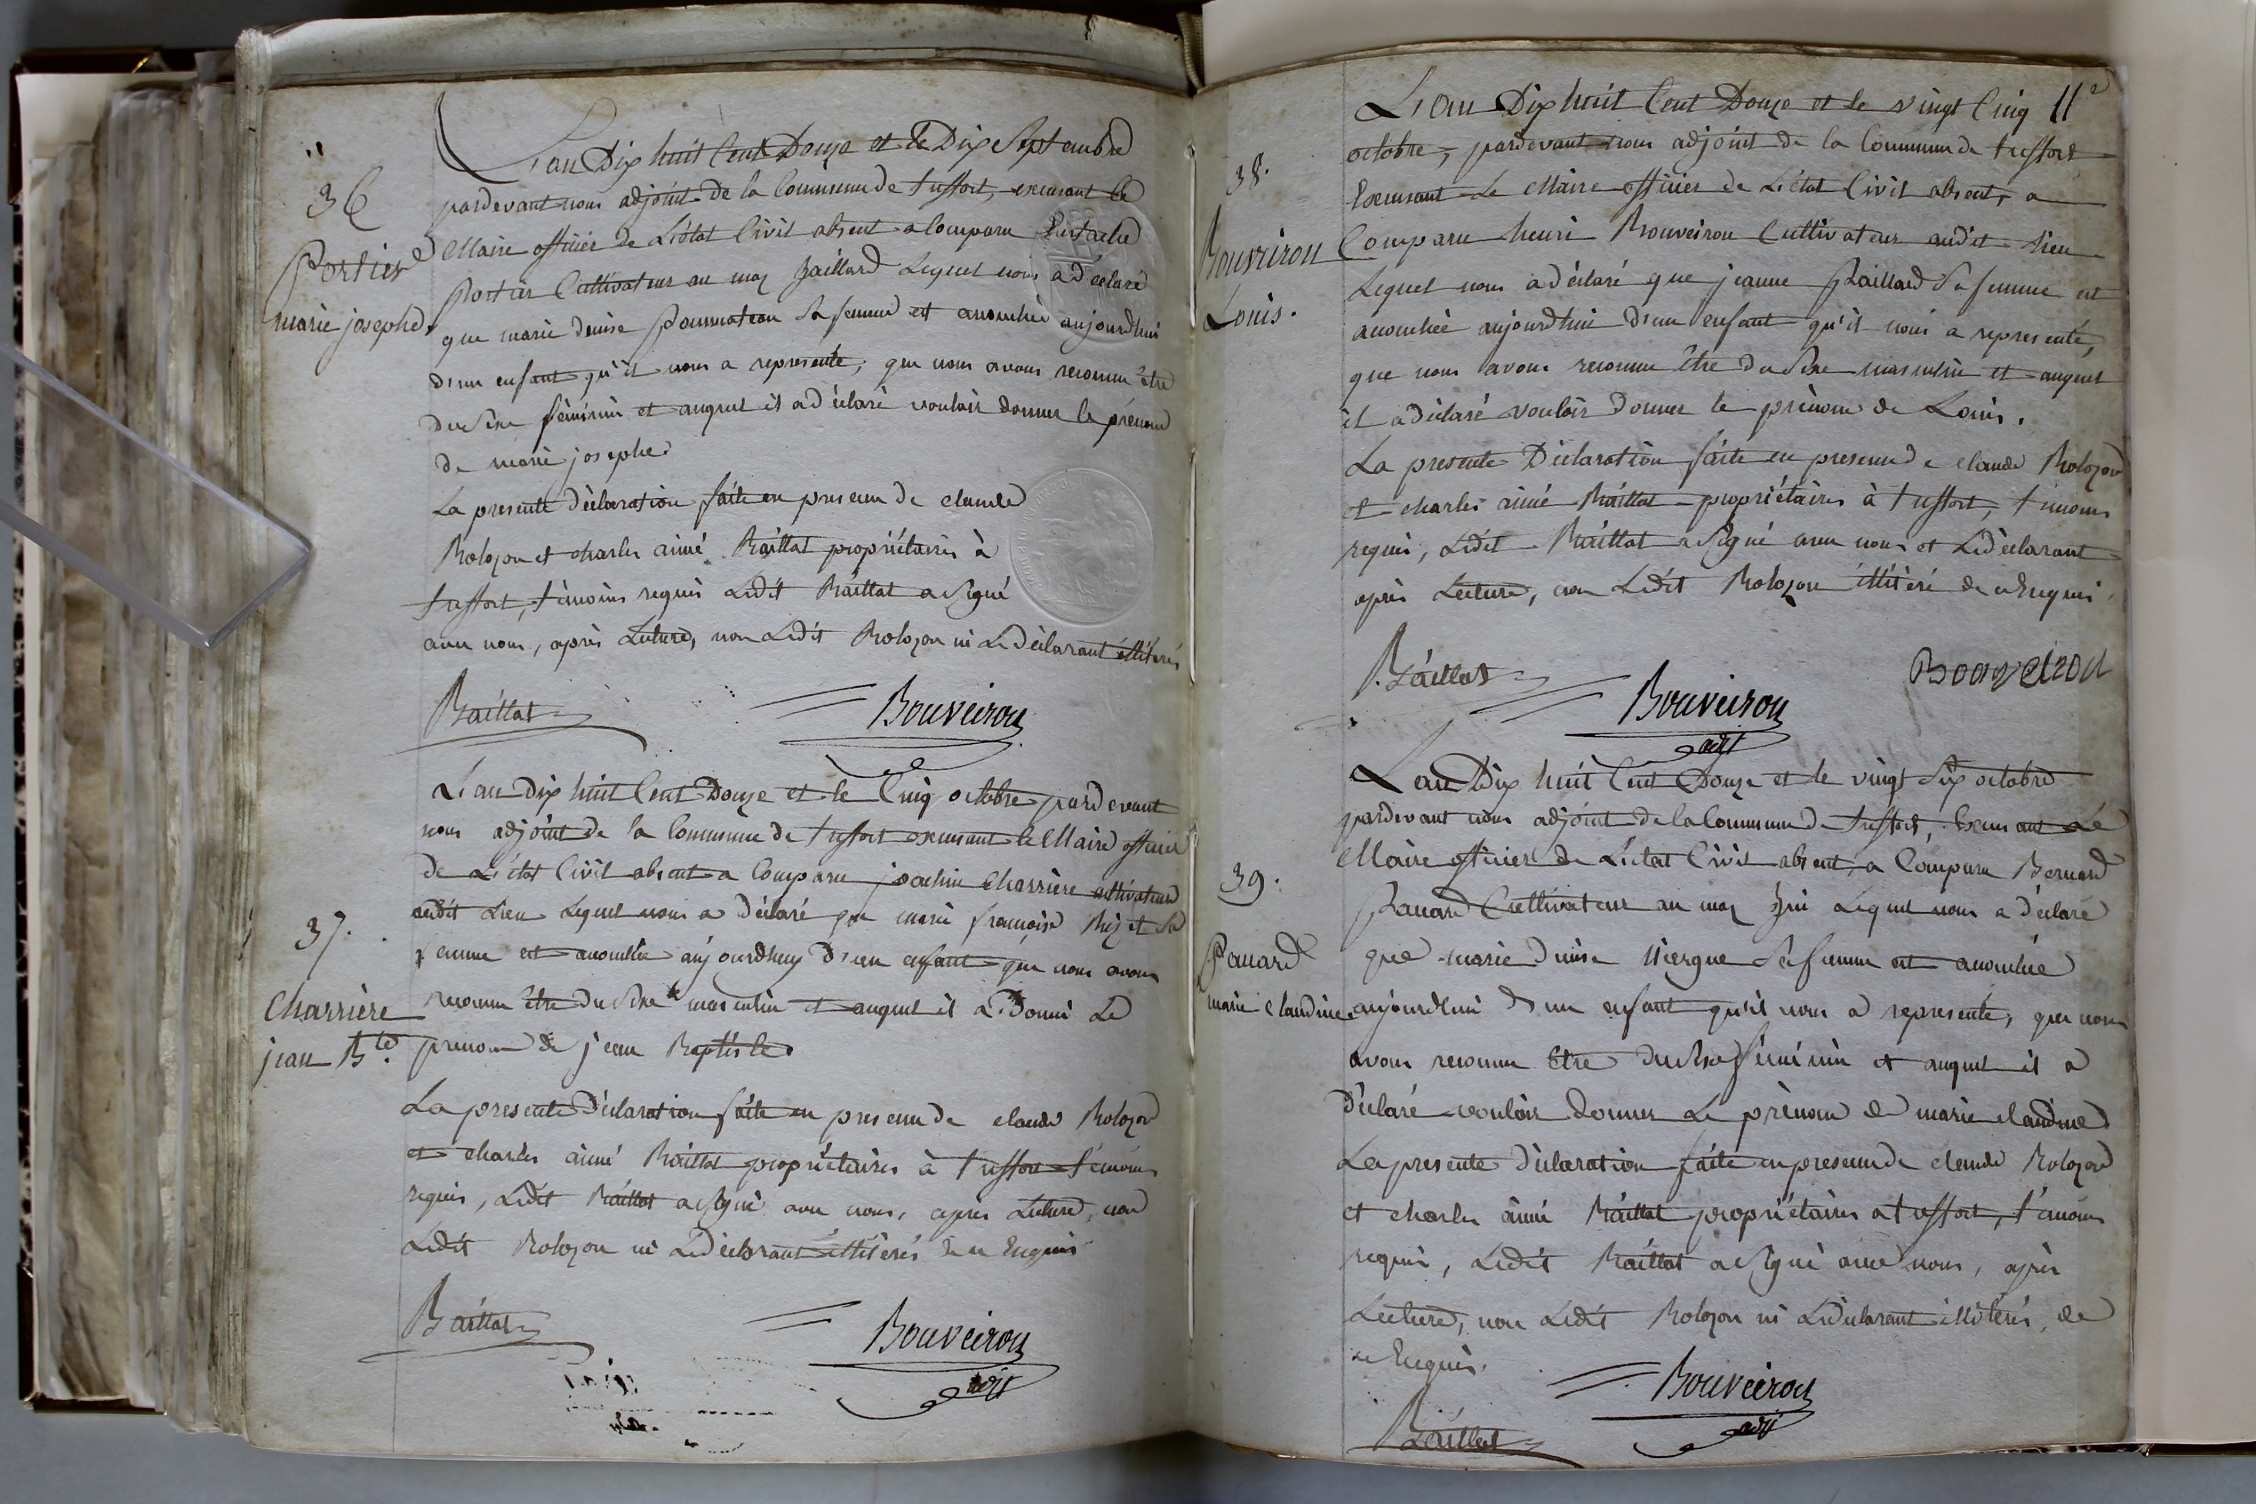 36
Portier
marie josephe.
L'an Dix huit Cent Douze et le Dix Septembre
pardevant nous adjoint de la Commune de treffort, exerçant le
Maire officier de L'état Civil absent a Comparu Eustache
Portier Cultivateur au maz Lequel nous a déclaré
que marie denise sa femme est accouchée aujourdhui
d'un enfant qu'il nous a representé, que nous avons reconnu être
du Sexe féminin et auquel il a déclaré vouloir donner le prénom
de marie josephe.
La presente déclaration faite en presence de claude
Rolozon et charles aimé Raillat propriétaires à
treffort, témoins requis Ledit Raillat a Signé
avec nous, après Lecture, non Ledit Rolozon ni Le déclarant illitérés
Raillat
Bouveiron
37.
Charrière
jean Bte.
L'an dix huit Cent Douze et le Cinq octobre pardevant
nous adjoint de la Commune de treffort exerçant le Maire officier
de L'état Civil absent a Comparu joachin Charrière cultivateur
audit Lieu Lequel nous a déclaré que marie françoise sa
femme est accouchée aujourdhuy d'un enfant que nous avons
reconnu être du Sexe masculin et auquel il a Donné Le
prenom de jean Baptiste.
La presente Déclaration faite en presence de claude Rolozon
et charles aimé Raillat propriétaires à treffort témoins
requis, Ledit Raillat a Signé avec nous, après Lecture, non
Ledit Rolozon ni Le déclarant illitérés de ce Enquis
Raillat
Bouveiron
adjt
11e
38.
Bouveiron
Louis.
L'an Dix huit Cent Douze et le vingt Cinq
octobre, pardevant nous adjoint de la Commune de treffort
Exerçant Le Maire officier de L'état Civil absent, a
Comparu henri Bouveiron Cultivateur audit Lieu
Lequel nous a déclaré que jeanne Paillard Sa femme est
accouchée aujourdhui d'un enfant qu'il nous a representé,
que nous avons reconnu être du Sexe masculin et auquel
il a déclaré vouloir Donner le prénom de Louis.
La presente Déclaration faite en presence de claude Rolozon
et charles aimé Raillat propriétaires à treffort, témoins
requis, Ledit Raillat a Signé avec nous et Le déclarant
après Lecture, non Ledit Rolozon illitéré de ce Enquis.
Raillat
Bouveiron
adjt
Bouveiron
39.
Pauard
marie claudine
L'an Dix huit Cent Douze et le vingt Six octobre
pardevant nous adjoint de la Commune de treffort, Exerçant Le
Maire officier de L'état Civil absent, a Comparu Bernard
Pauard Cultivateur au maz Lequel nous a déclaré
que marie denise Niergue Sa femme est accouchée
aujourdhui d'un enfant qu'il nous a representé, que nous
avons reconnu Etre du Sexe féminin et auquel il a
Déclaré vouloir Donner Le prénom de marie claudine
La presente Déclaration faite en presence de claude Rolozon
et charles aimé Raillat propriétaires a treffort, témoins
requis, Ledit Raillat a Signé avec nous, après
Lecture, non Ledit Rolozon ni Le déclarant illitérés, de
ce Enquis.
Bouveiron
adjt
Raillat